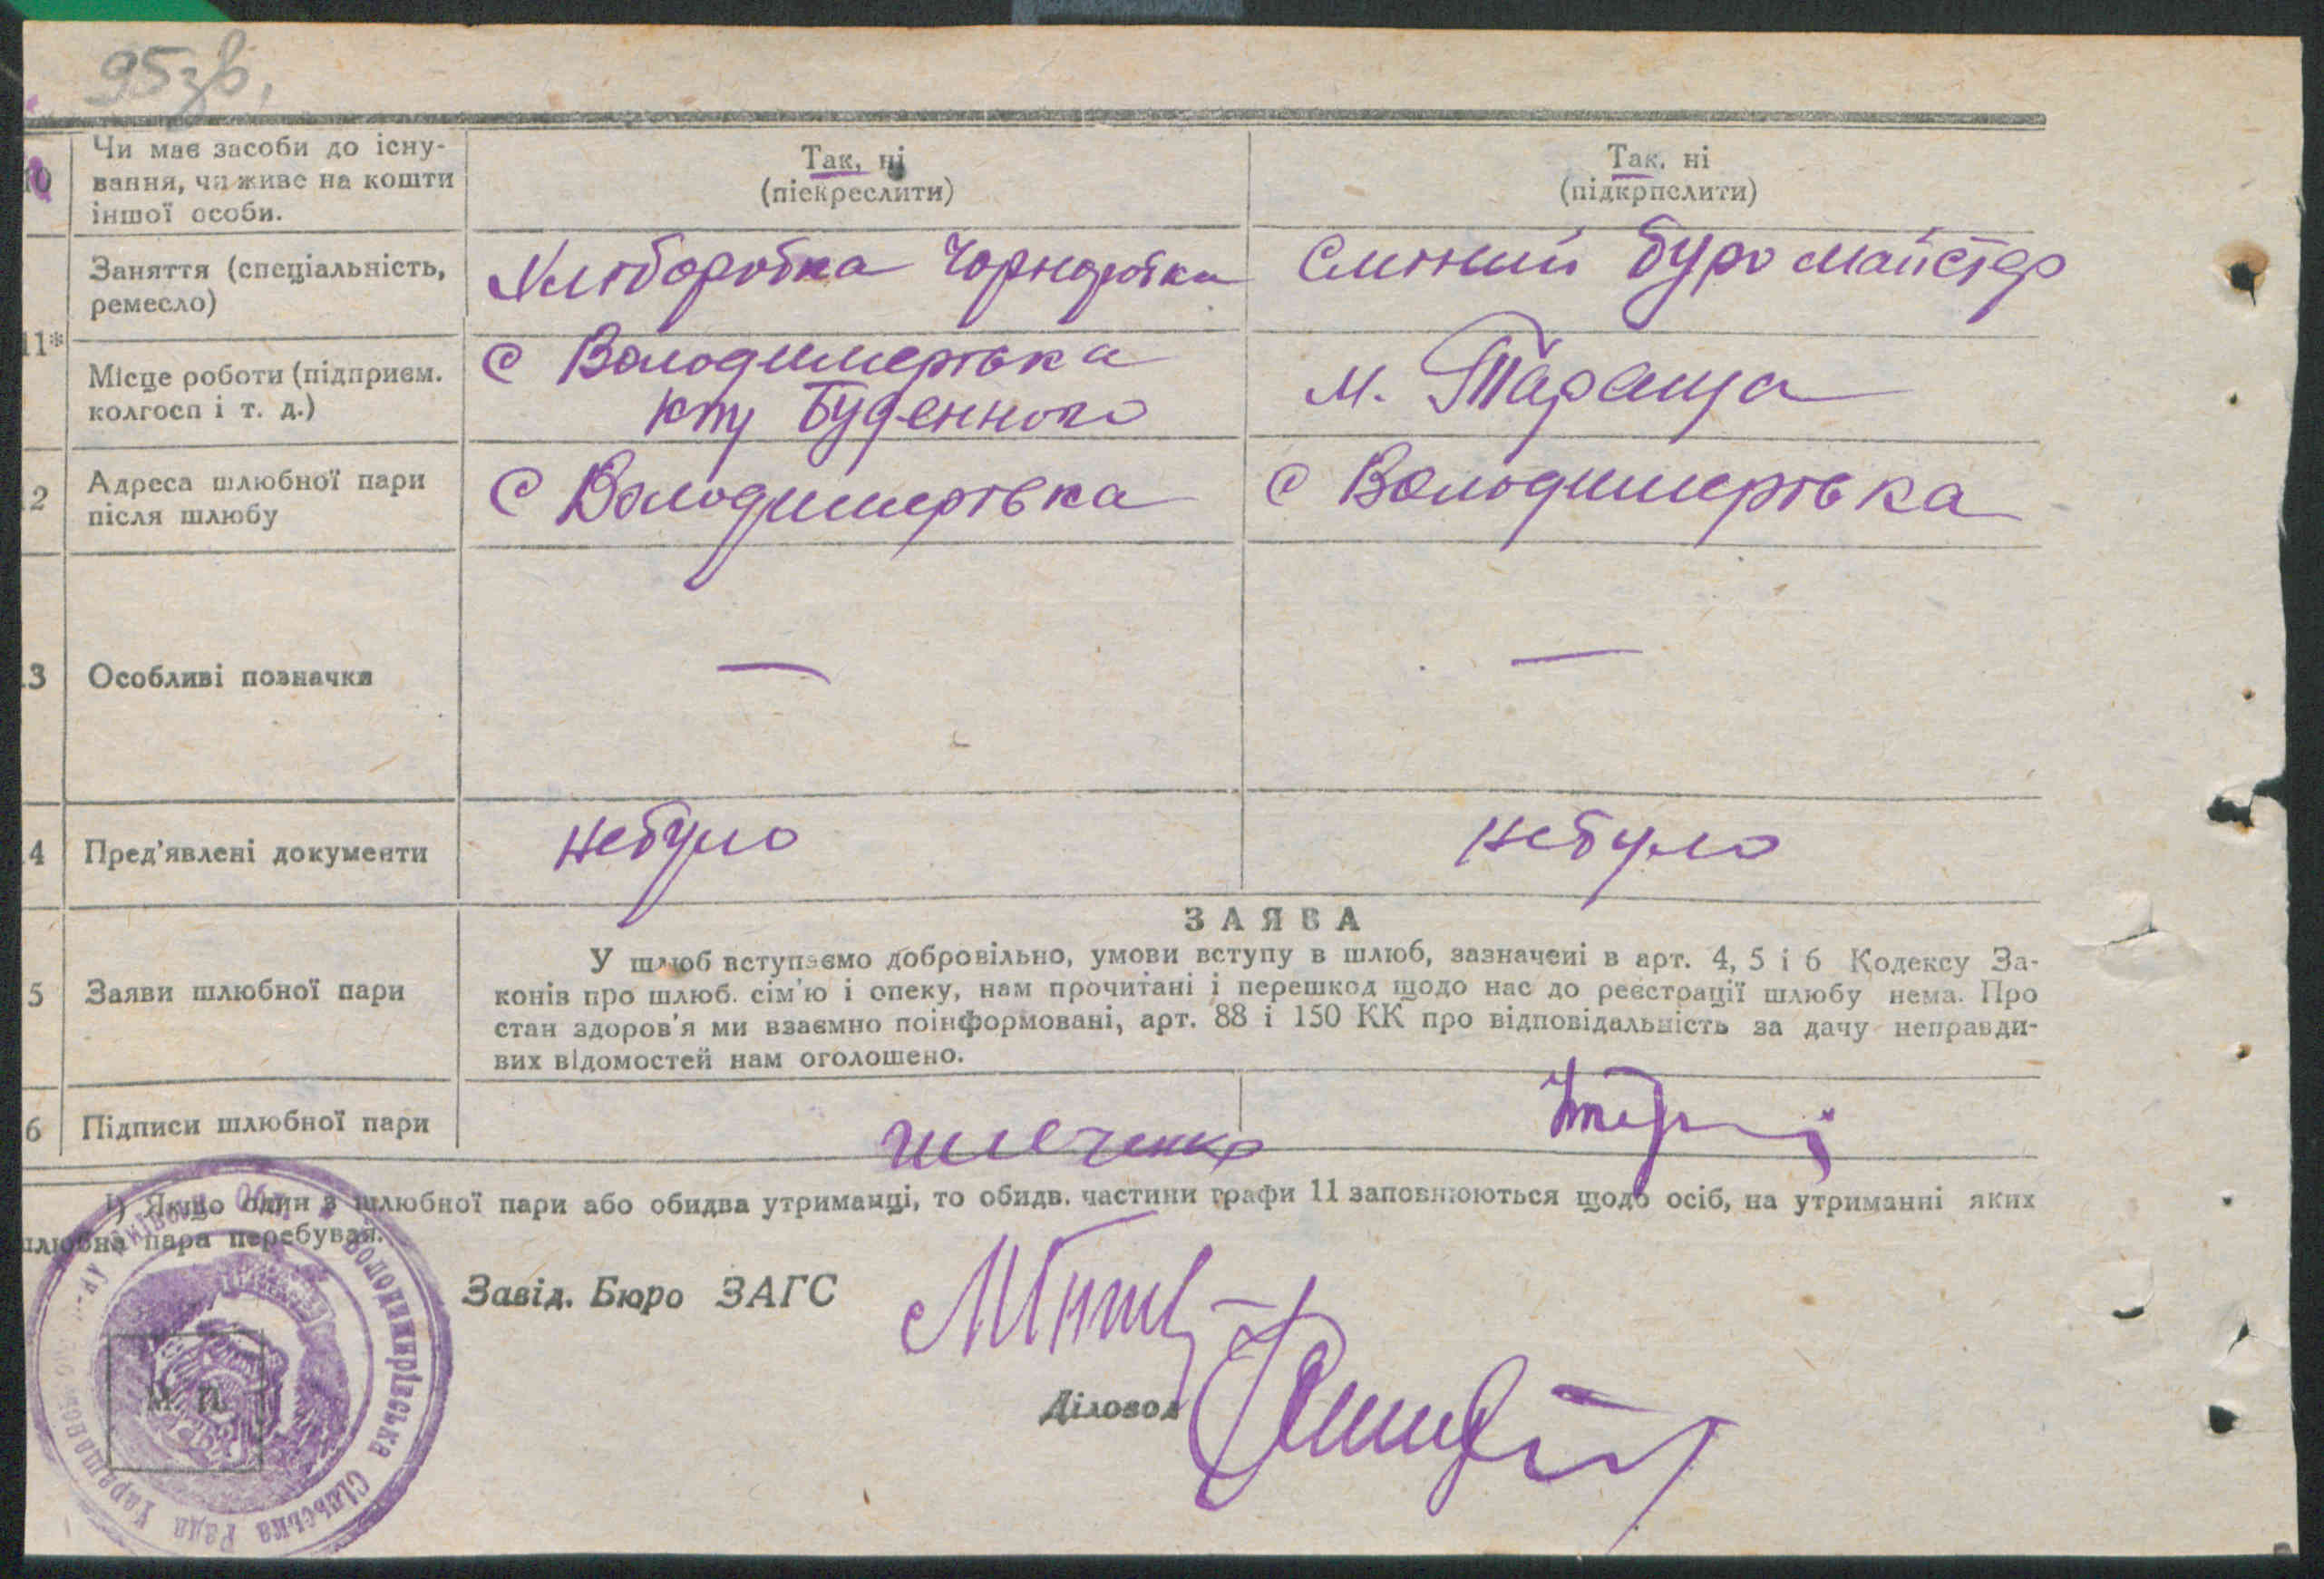 95зв.
10
Чи має засоби до існу-
вання, чи живе на кошти
іншої особи.
Так, ні
(піекреслити)
Так, ні
(підкрпслити)
11*
Заняття (спеціальність,
ремесло)
Хліборобка Чорноробка
Смінний буро майстер
Місце роботи (підприєм.
колгосп і т. д.)
с Володимирівка
кту Буденного
м. Тараща
2
Адреса шлюбної пари
після шлюбу
с Володимирівка
с Володимирівка
3
Особливі позначки
—
—
4
Пред'явлені документи
небуло
небуло
5
Заяви шлюбної пари
ЗАЯВА
У шлюб вступаємо добровільно, умови вступу в шлюб, зазначені в арт. 4, 5 і 6 Кодексу За-
конів про шлюб. сім'ю і опеку, нам прочитані і перешкод щодо нас до реєстрації шлюбу нема. Про
стан здоров'я ми взаємно поінформовані, арт. 88 і 150 КК про відповідальність за дачу неправди-
вих відомостей нам оголошено.
6
Підписи шлюбної пари
1) Якщо один з шлюбної пари або обидва утриманці, то обидв. частини графи 11 заповнюються щодо осіб, на утриманні яких
шлюбна пара перебував.
Завід. Бюро ЗАГС
Діловод
М. П.
Володимирівська Сільська Рада Таращансько